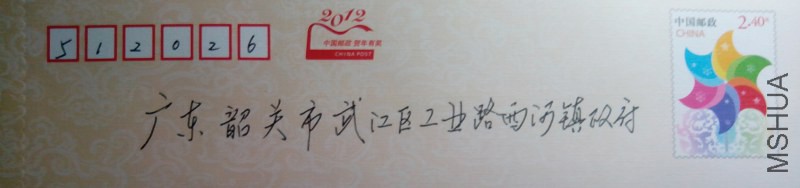 512026
2012
中国邮政 贺年有奖
CHINA POST
中国邮政 2.40元
CHINA
广东韶关市武江区工业路西河镇政府
MSHUA